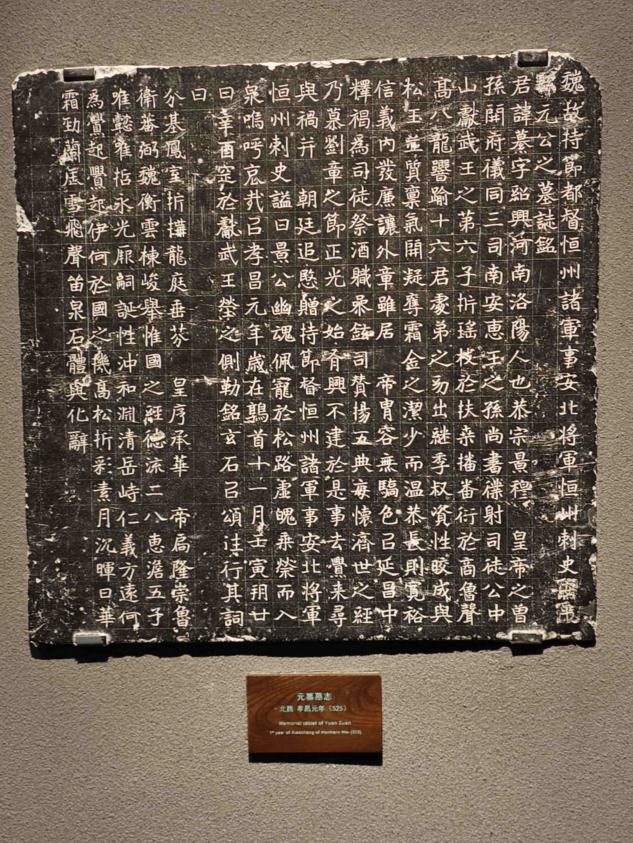 魏故持節都督恒州諸軍事安北将軍恒州刺史
元公之墓誌銘
君諱字紹興河南洛陽人也恭宗景穆 皇帝之曽
孫開府儀同三司南安惠王之孫尚書僕射司徒公中
山獻武王之第六子㭊瑶枝於扶桒播畨衍於啇魯聲
髙八龍響踰十六君處弟之㓜出継季叔資性皎成與
松玉並質禀氣開凝霜金之潔少而温恭長則寛裕
信義内發廉讓外章雖居 帝胄容無驕色㠯延昌中
釋褐爲司徒祭酒職叅錄司賛揚五典每懐濟世之經
乃慕劉章之節正光之始有興不建於是事去舋来尋
與禍并 朝廷追愍贈持節督恒州諸軍事安北将軍
恒州刺史謚曰景公幽魂佩寵於松路虚魄乘榮而入
泉嗚呼哀㢤㠯孝昌元年歲在鶉首十一月壬寅朔廿
日辛酉窆於獻武王塋之側勒銘玄石㠯頌注行其詞
曰
分基鳳室折龍庭垂芬 皇序承華 帝扃隆崇魯
衛蕃弼魏衡雲棟峻舉惟國之經德流二八恵澹五子
唯懿雍哲永光厥嗣誕性沖和淵清岳峙仁義方遠何
爲舋起舋起伊何於國之機高松折彩素月沉暉日華
霜勁蘭風雪飛聲笛泉石體與化辭
元慕墓志
北魏 孝昌元年（525）
Memorial tablet of Yuan Zuan
1st year of Xiaochang of Northern Wei (525)